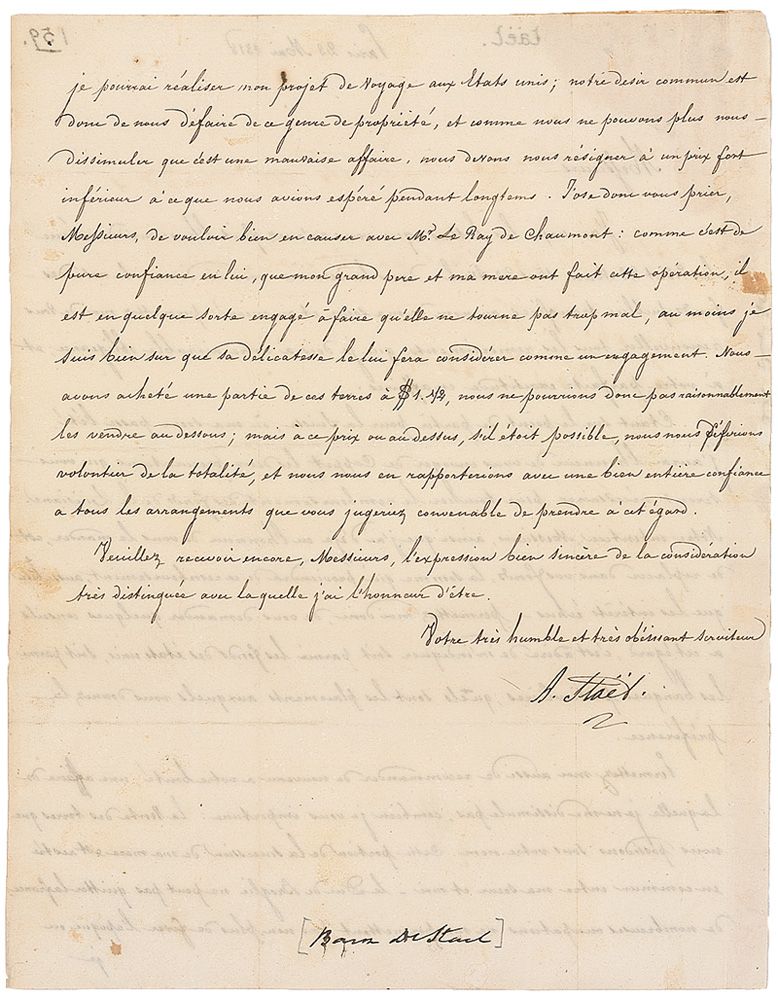 je pourrai réaliser mon projet de voyage aux Etats unis; notre desir commun est
donc de nous défaire de ce genre de propriété, et comme nous ne pouvons plus nous
dissimuler que c'est une mauvaise affaire, nous devons nous résigner à un prix fort
inférieur à ce que nous avions espéré pendant longtems. J'ose donc vous prier,
Messieurs, de vouloir bien en causer avec Mr. Le Ray de Chaumont: comme c'est de
pure confiance en lui, que mon grand pere et ma mere ont fait cette opération, il
est en quelque sorte engagé à faire qu'elle ne tourne pas trop mal, au moins je
suis bien sur que sa délicatesse le lui fera considérer comme un engagement. Nous
avons acheté une partie de ces terres à $ 1. 1/2, nous ne pourrions donc pas raisonnablement
les vendre au dessous; mais à ce prix ou au dessus, s'il étoit possible, nous nous déferions
volontier de la totalité, et nous nous en rapporterions avec une bien entière confiance
a tous les arrangements que vous jugeriez convenable de prendre à cet égard.
Veuillez recevoir encore, Messieurs, l'expression bien sincère de la considération
très distinguée avec la quelle j'ai l'honneur d'être.
Votre très humble et très obéissant serviteur
A. Staël.
[Baron De Stael]